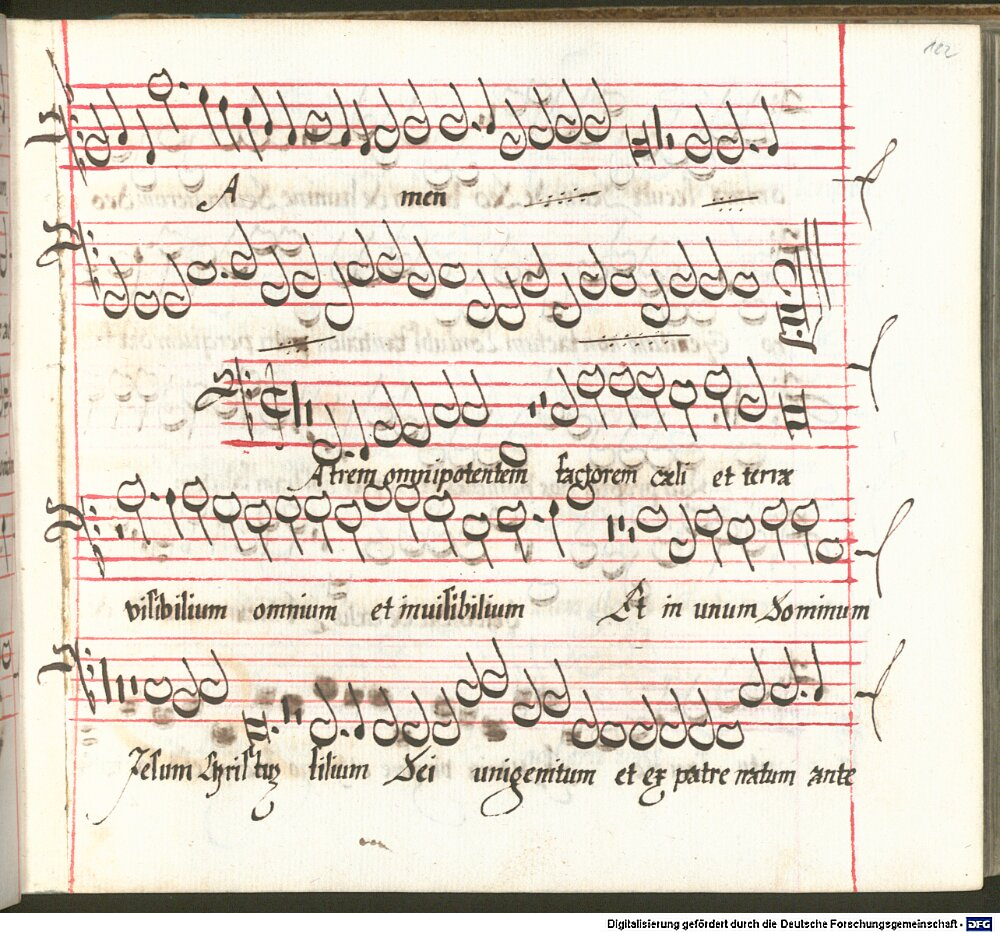 182
A men
Atrem omnipotentem factorem cæli et terræ
visibilium omnium et invisibilium Et in unum Dominum
Jesum Christum filium Dei unigenitum et ex patre natum ante
Digitalisierung gefördert durch die Deutsche Forschungsgemeinschaft - DFG